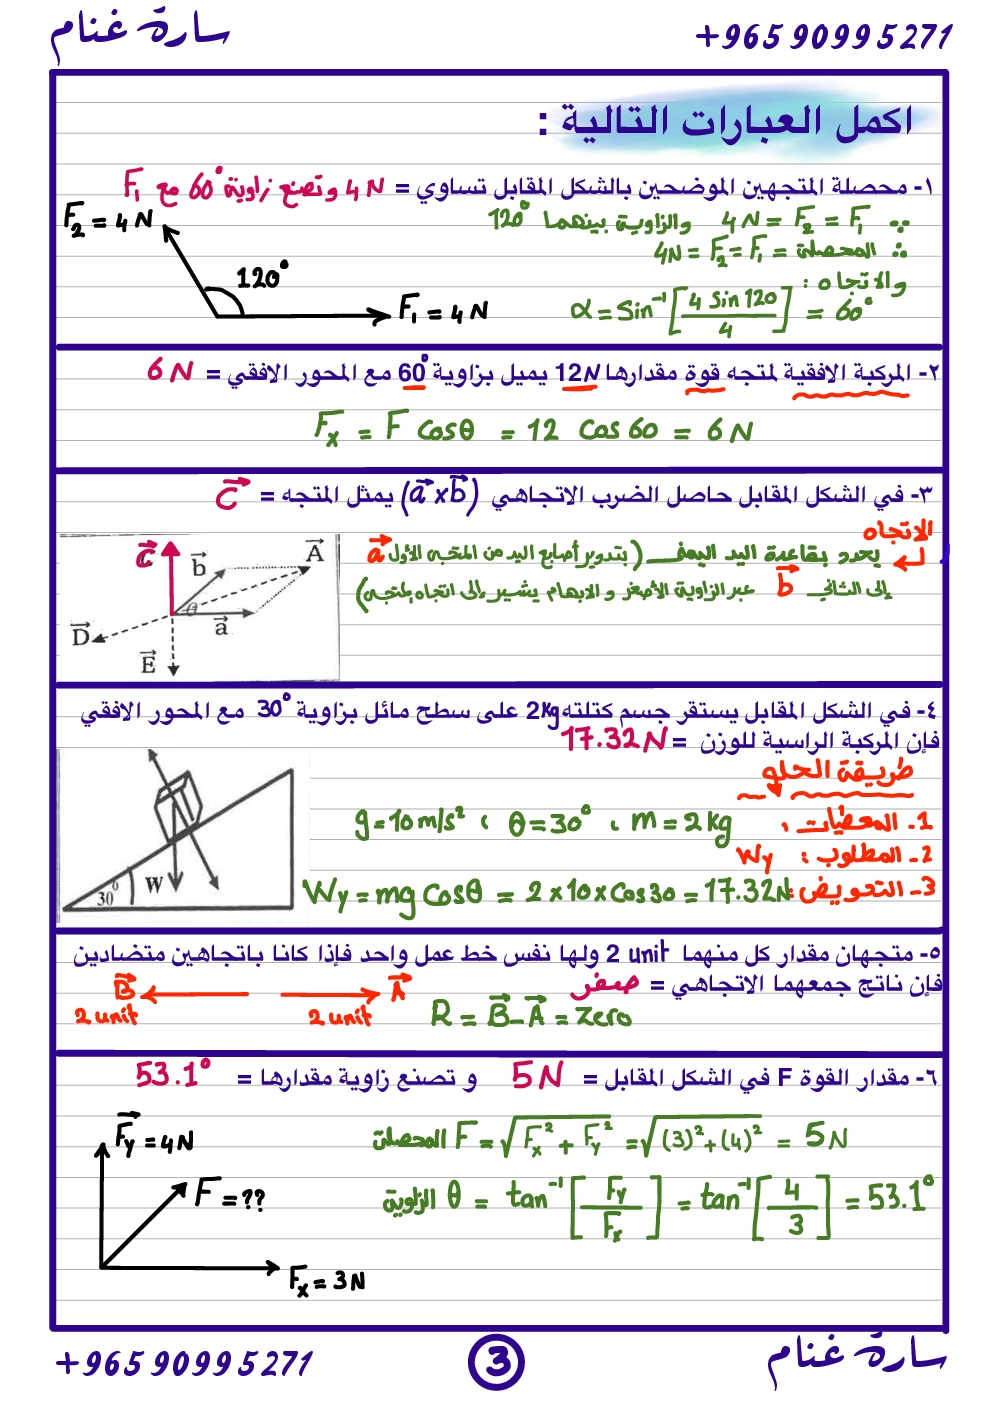 سارة غنام
+965 9099 5271
اكمل العبارات التالية :
١- محصلة المتجهين الموضحين بالشكل المقابل تساوي = 4 N وتصنع زاوية 60° مع F₁
∵ F₁ = F₂ = 4 N والزاوية بينهما 120°
∴ المحصلة = F₁ = F₂ = 4N
والاتجاه :
α = Sin⁻¹ [4 Sin 120 / 4] = 60°
F₂ = 4 N
120°
F₁ = 4 N
٢- المركبة الافقية لمتجه قوة مقدارها 12N يميل بزاوية 60° مع المحور الافقي = 6 N
Fₓ = F Cosθ = 12 Cos 60 = 6 N
٣- في الشكل المقابل حاصل الضرب الاتجاهي (a⃗ x b⃗) يمثل المتجه = C⃗
الاتجاه
يحدد بقاعدة اليد اليمنى (بتدوير أصابع اليد من المتجه الأول a⃗
إلى الثاني b⃗ عبر الزاوية الأصغر و الابهام يشير إلى اتجاه المتجه)
C⃗
b⃗
A⃗
θ
a⃗
D⃗
E⃗
٤- في الشكل المقابل يستقر جسم كتلته 2kg على سطح مائل بزاوية 30° مع المحور الافقي
فإن المركبة الراسية للوزن = 17.32 N
طريقة الحل
1- المعطيات : m = 2 kg ، θ = 30° ، g = 10 m/s²
2- المطلوب : Wy
3- التعويض : Wy = mg Cosθ = 2 x 10 x Cos 30 = 17.32 N
W
30°
٥- متجهان مقدار كل منهما 2 unit ولها نفس خط عمل واحد فإذا كانا باتجاهين متضادين
فإن ناتج جمعهما الاتجاهي = صفر
B⃗
A⃗
2 unit
2 unit
R = B⃗ - A⃗ = Zero
٦- مقدار القوة F في الشكل المقابل = 5 N و تصنع زاوية مقدارها = 53.1°
F⃗y = 4 N
المحصلة F = √(Fₓ² + Fy²) = √((3)² + (4)²) = 5 N
F = ??
الزاوية θ = tan⁻¹ [Fy / Fₓ] = tan⁻¹ [4 / 3] = 53.1°
Fₓ = 3 N
+965 9099 5271
3
سارة غنام